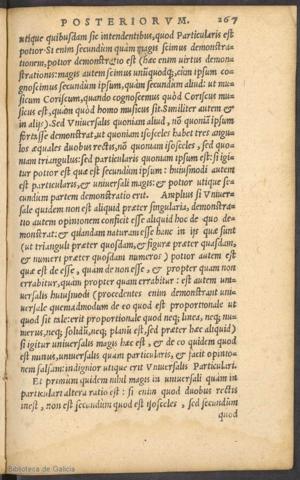 POSTERIORVM. 267
utique quibusdam sic intendentibus, quod Particularis est
potior. Si enim secundum quam magis scimus demonstra-
tionem, potior demonstratio est (haec enim virtus demon-
strationis: magis autem scimus unũquodq;, cùm ipsum co-
gnoscimus secundum ipsum, quàm secundum aliud: ut mu-
sicum Coriscum, quando cognoscemus quòd Coriscus mu-
sicus est, quàm quòd homo musicus sit. Similiter autem &
in alijs.) Sed Vniuersalis quoniam aliud, nõ quoniã ipsum
fortasse demonstrat, ut quoniam isosceles habet tres angu-
los aequales duobus rectis, nõ quoniam isosceles, sed quo-
niam triangulus: sed particularis quoniam ipsum est: si igi-
tur potior est quae est secundum ipsum: huiusmodi autem
est particularis, & uniuersali magis: & potior utique se-
cundum partem demonstratio erit. Amplius si Vniuer-
sale quidem non est aliquid praeter singularia, demonstra-
tio autem opinionem conficit esse aliquid hoc de quo de-
monstrat: & quandam naturam esse hanc in ijs quae sunt
(ut trianguli praeter quosdam, & figurae praeter quasdam,
& numeri praeter quosdam numeros) potior autem est
quae est de esse, quàm de non esse, & propter quam non
errabitur, quàm propter quam errabitur: est autem uni-
uersalis huiusmodi (procedentes enim demonstrant uni-
uersale quemadmodum de eo quod est proportionale ut
quod sit tale: erit proportionale quod neq; linea, neq; nu-
merus, neq; solidũ, neq; planũ est, sed praeter haec aliquid)
si igitur uniuersalis magis haec est, & de eo quidem quod
est minus, uniuersalis quàm particularis, & facit opinio-
nem falsam: indignior utique erit Vniuersalis Particulari.
Et primum quidem nihil magis in uniuersali quàm in
particulari altera ratio est: si enim quod duobus rectis
inest, non est secundum quod est isosceles, sed secundum
quod
Biblioteca de Galicia